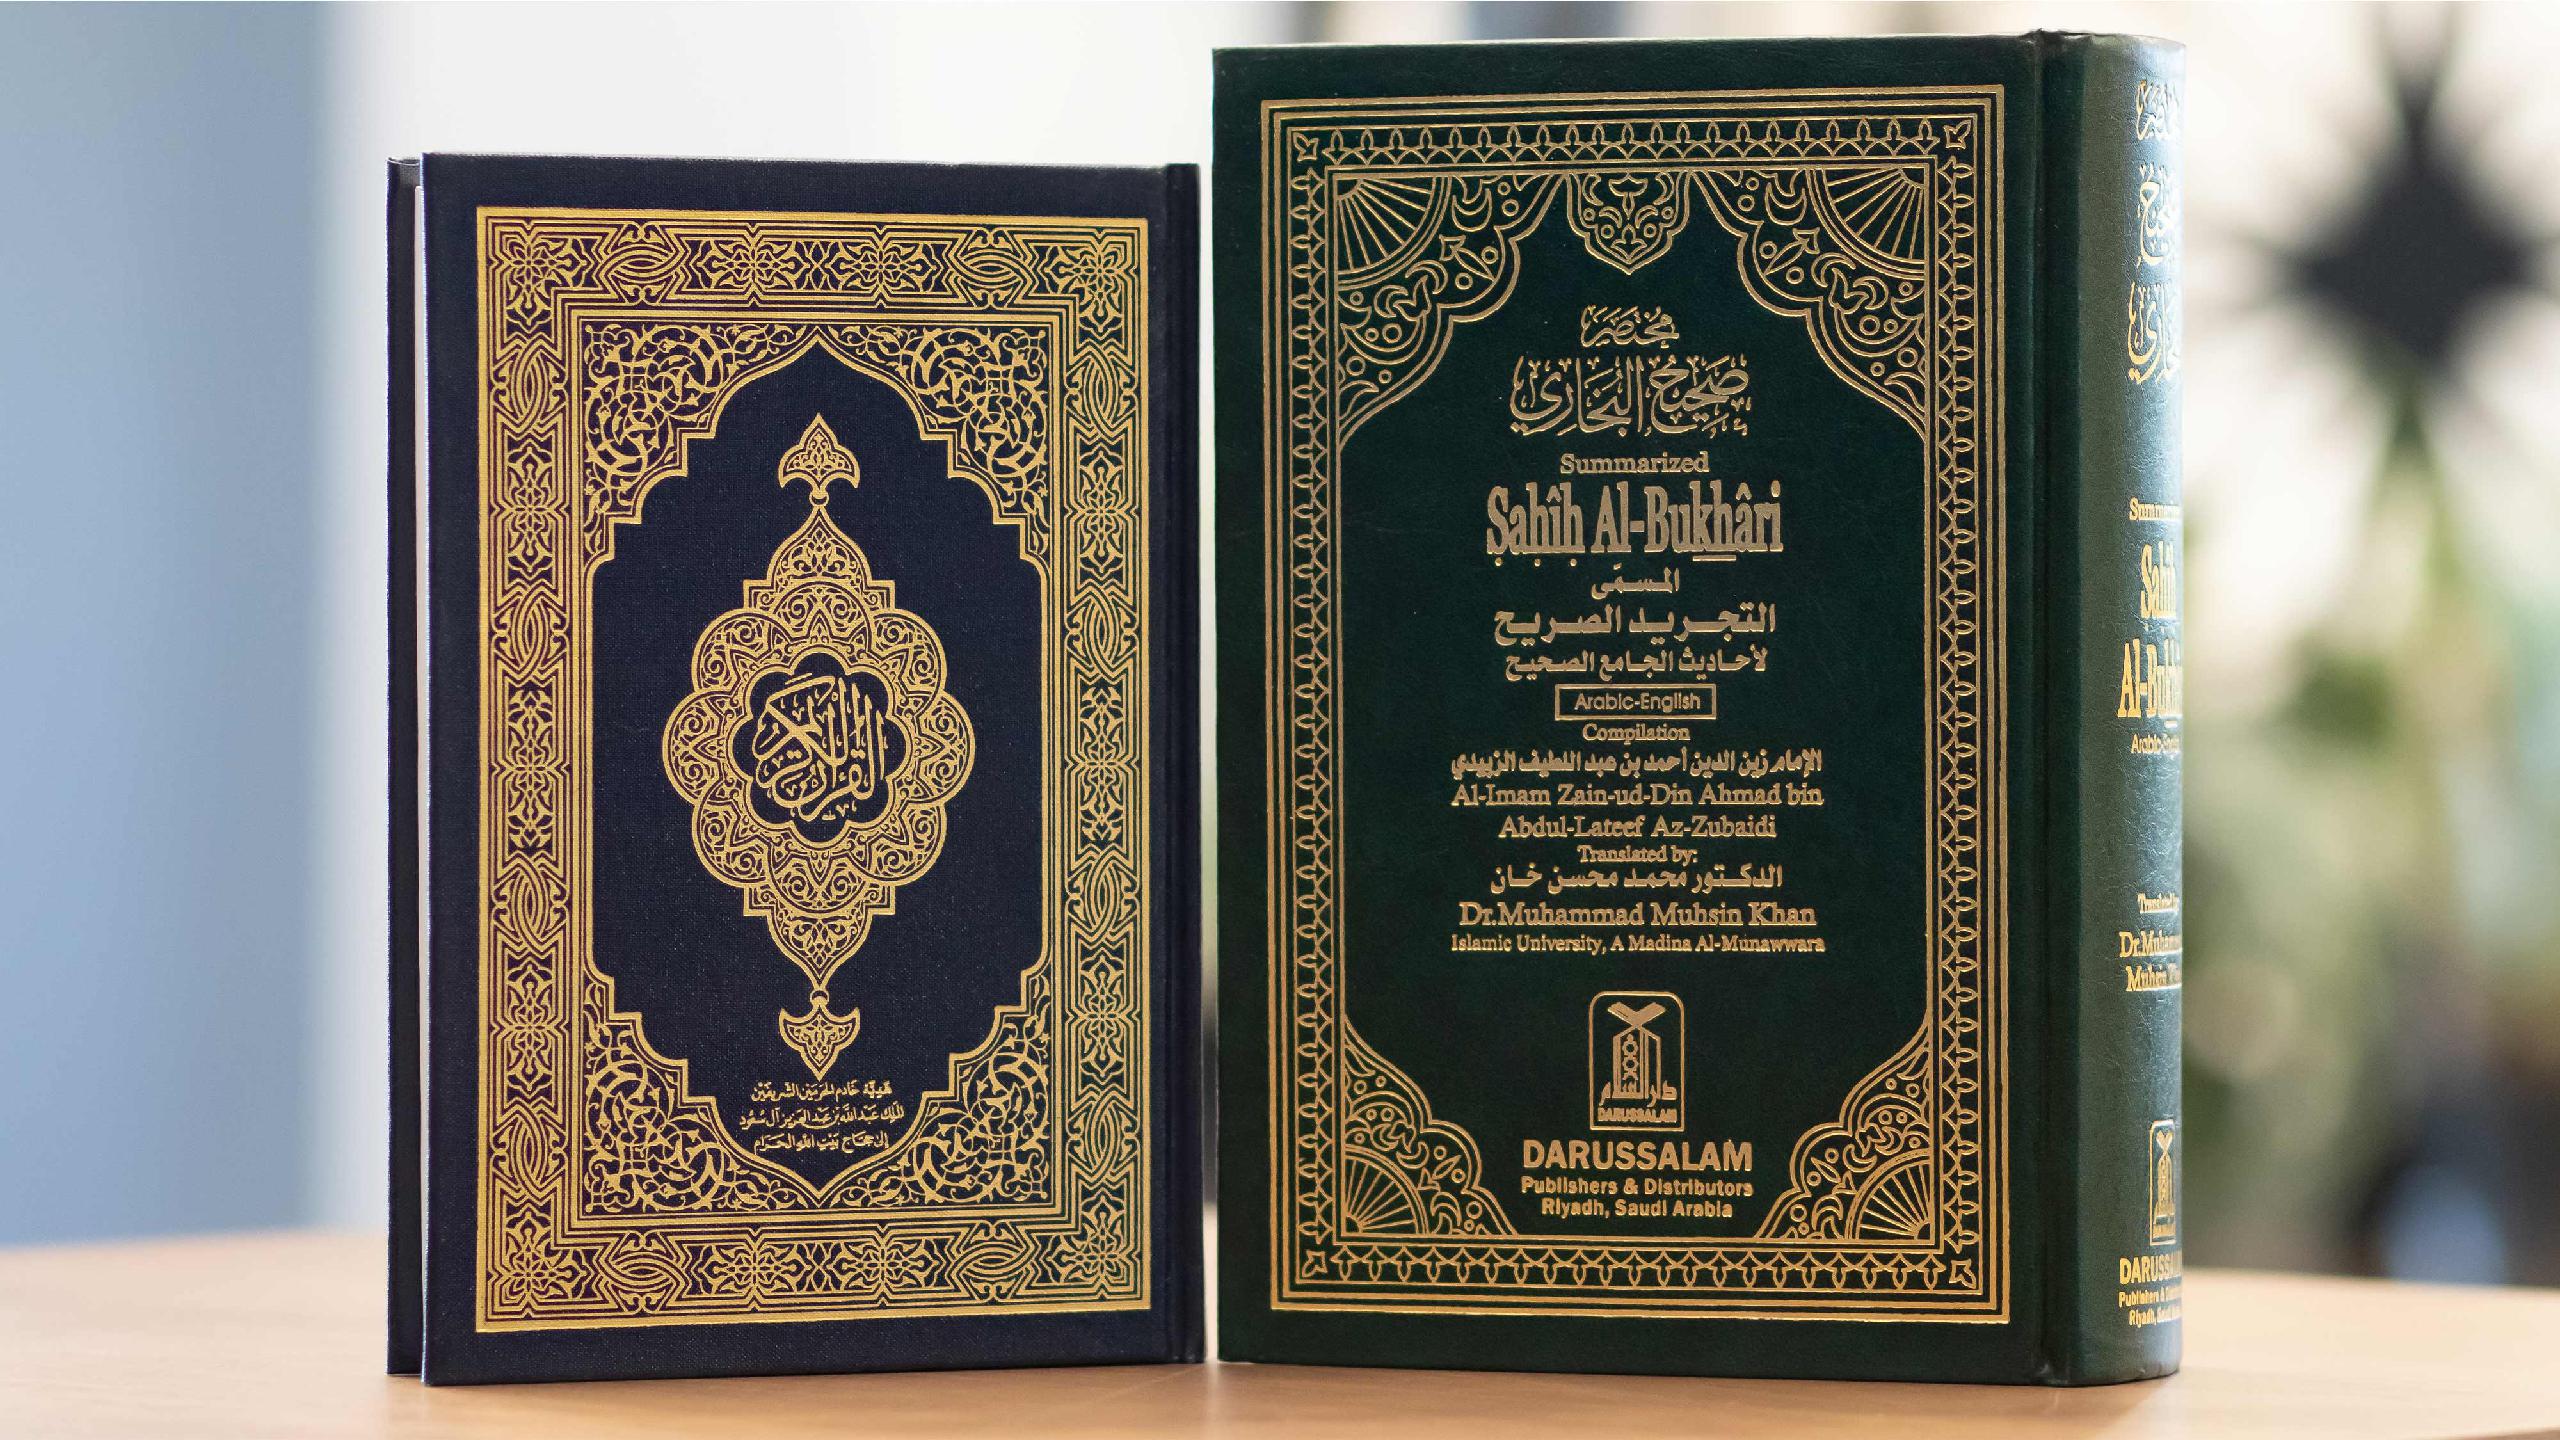 القرآن الكريم
هَديَّة خَادِم الحَرَمَيْن الشَّريفَيْن
المَلِك عَبْد الله بْن عَبْد العَزيز آل سُعُود
إلى حُجَّاج بَيْتِ اللهِ الحَرَام
مُختَصَر
صَحِيحُ البُخَارِي
Summarized
Ṣaḥîḥ Al-Bukhâri
المسمّى
التجريد الصريح
لأحاديث الجامع الصحيح
Arabic-English
Compilation
الإمام زين الدين أحمد بن عبد اللطيف الزبيدي
Al-Imam Zain-ud-Din Ahmad bin
Abdul-Lateef Az-Zubaidi
Translated by:
الدكتور محمد محسن خان
Dr.Muhammad Muhsin Khan
Islamic University, A Madina Al-Munawwara
دار السلام
DARUSSALAM
DARUSSALAM
Publishers & Distributors
Riyadh, Saudi Arabia
Ṣaḥîḥ